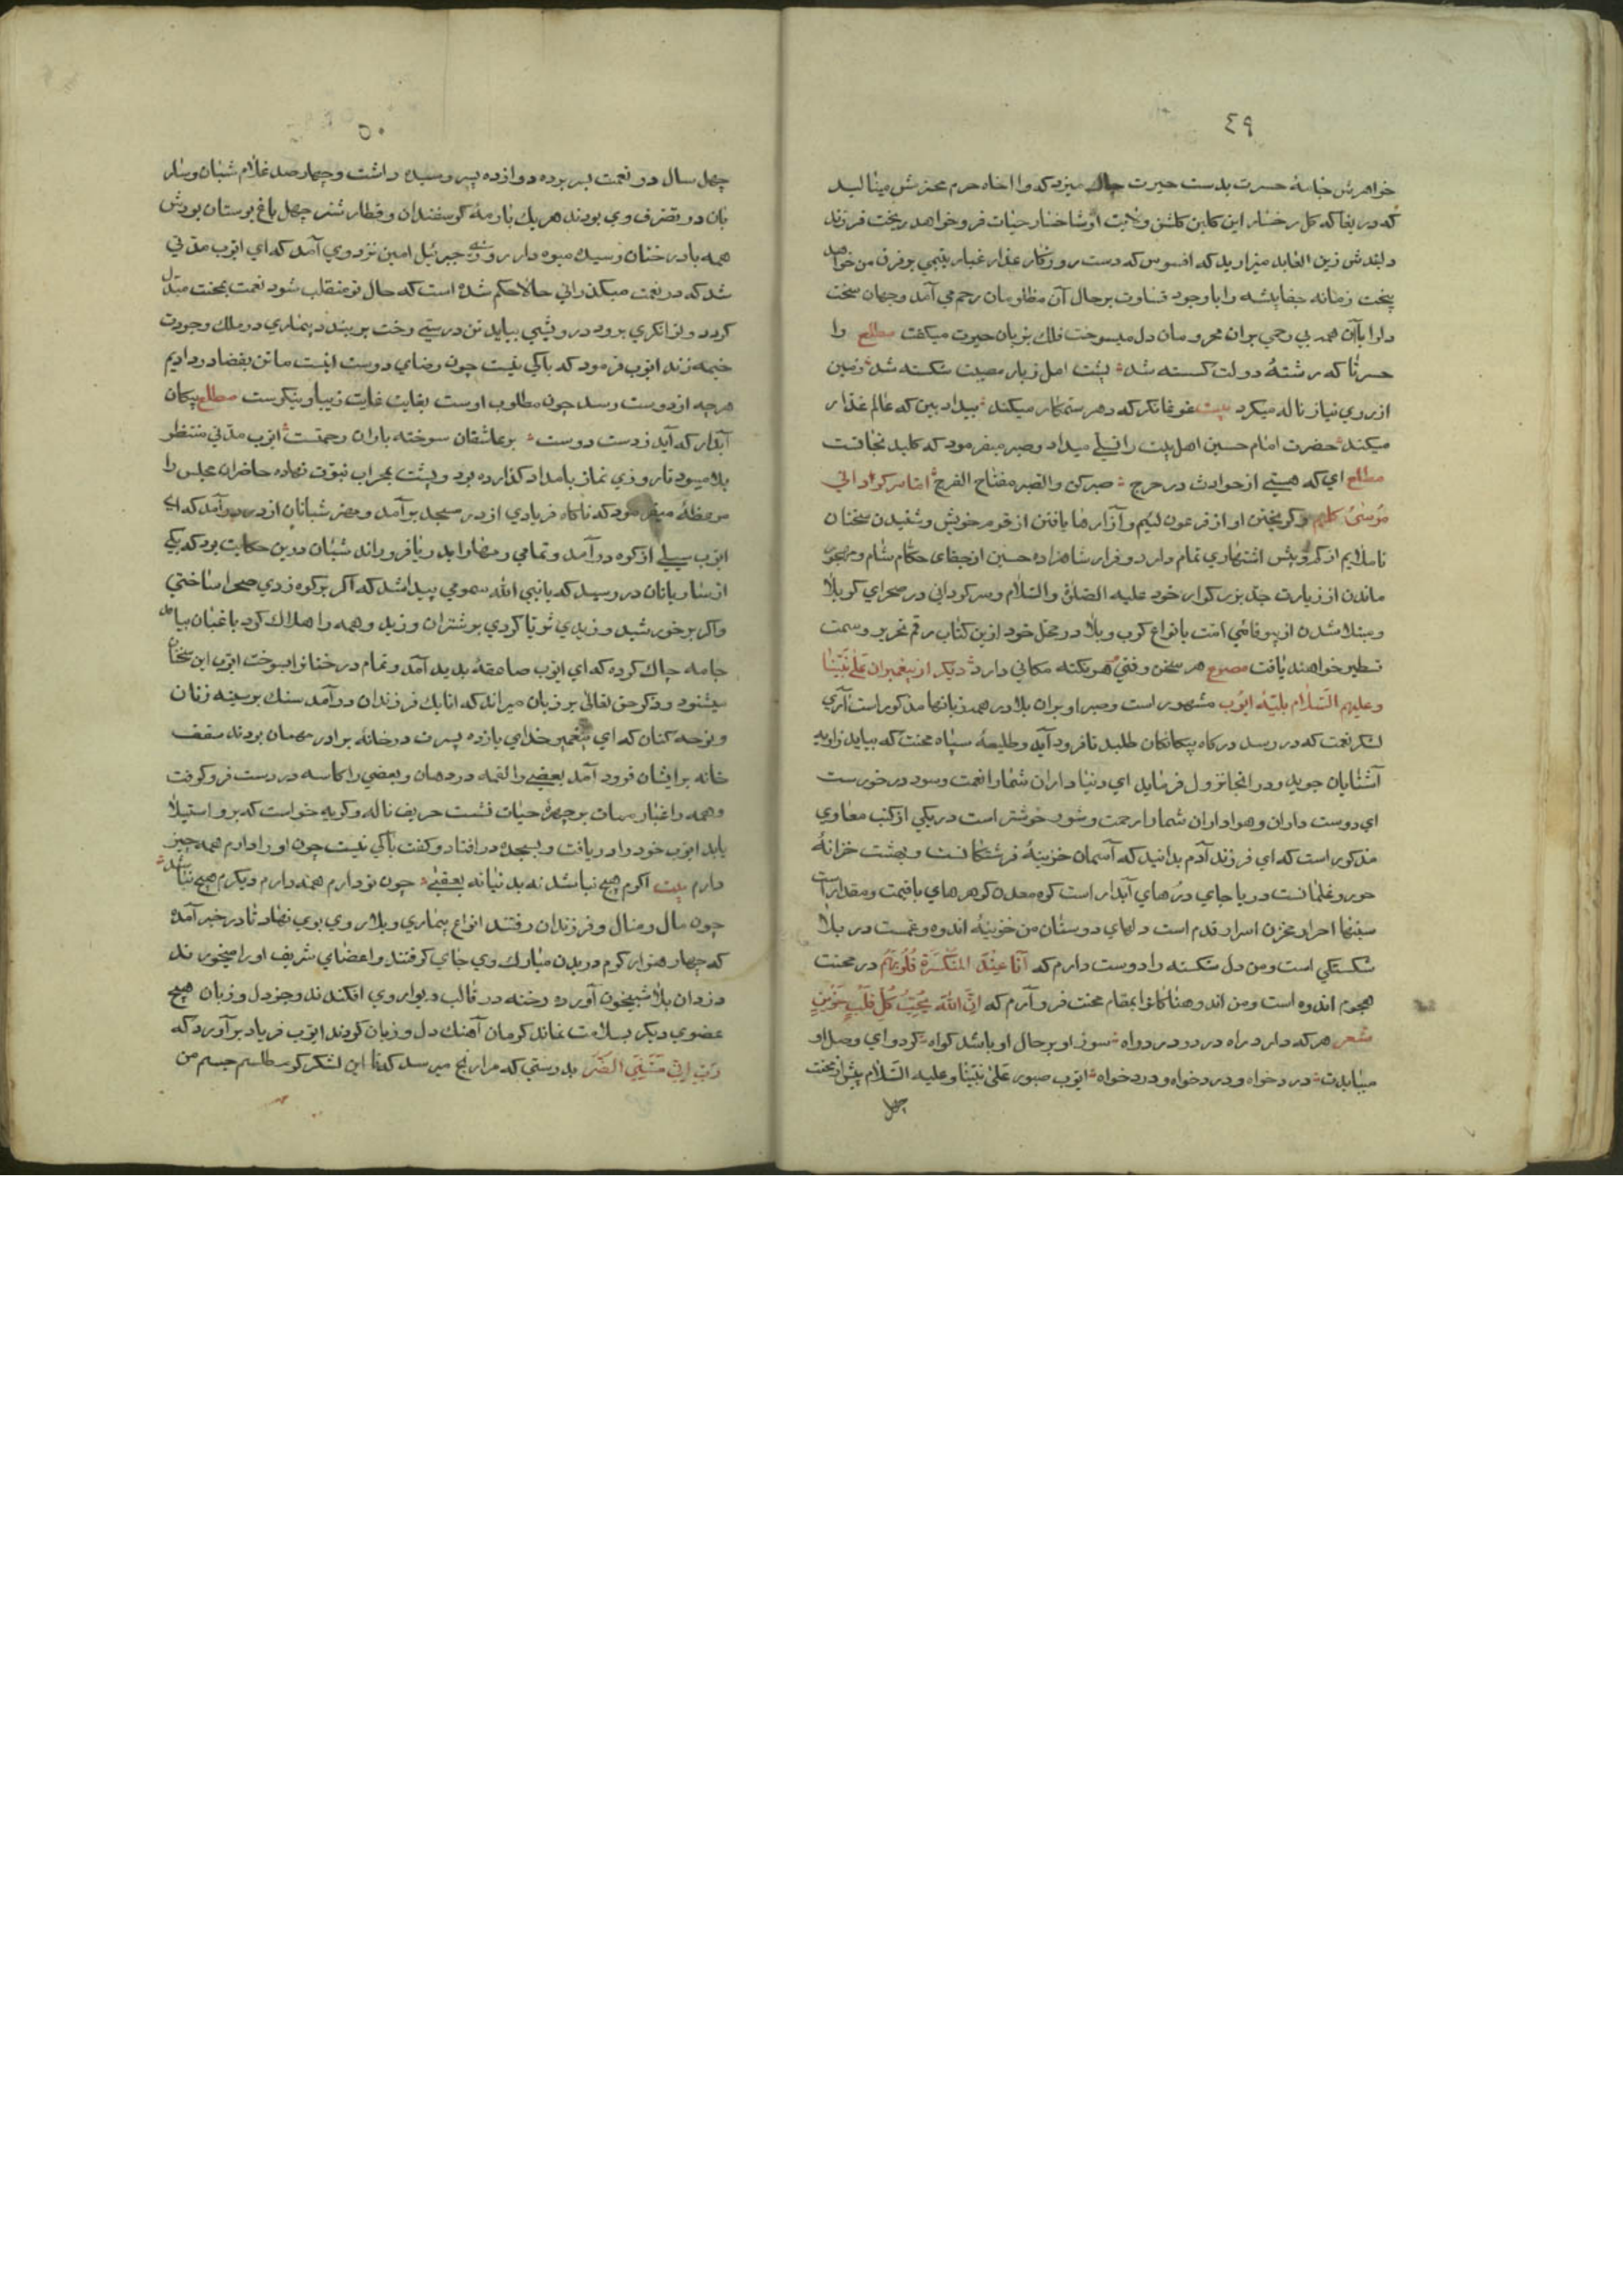 ٤٩
خواهرش جامهٔ حسرت بدست حیرت چاك میزد که وا اخاه حرم محترمش مینالید
که دریغا که کل رخسار این کلبن کلشن ولایت از شاخسار حیات فرو خواهد ریخت فرزند
دلبندش زین العابد میزارید که افسوس که دست روزکار غدار غبار یتیمی بر فرق من خواهد
بیخت زمانه جفاپیشه را باوجود قساوت بر حال آن مظلومان رحم می آمد وجهان سخت
دل را باآن همه بی رحمی بران محرومان دل میسوخت فلك بزبان حیرت میکفت مطلع وا
حسرتا که رشتهٔ دولت کسسته شد پشت امل زبار مصیبت شکسته شد زمین
از روی نیاز ناله میکرد بیت غوغا نکر که دهر ستمکار میکند بیداد بین که عالم غدار
میکند حضرت امام حسین اهل بیت را تسلی میداد وصبر میفرمود که کلید نجاتست
مطلع ای که هستی از حوادث در حرج صبر کن والصبر مفتاح الفرج اما سرکردانی
موسیٰ کلیم وکریختن او از فرعون لئیم وآزارها یافتن از قوم خویش وشنیدن سخنان
ناملایم از کم وبیش اشتهاری تمام دارد وفرار شاهزاده حسین از جفای حکام شام ومهجور
ماندن از زیارت جد بزرکوار خود علیه الصلوة والسلام وسرکردانی در صحرای کربلا
ومبتلا شدن از بیوفائی امت بانواع کرب وبلا در محل خود ازین کتاب رقم تحریر وسمت
تسطیر خواهند یافت مصرع هر سخن وقتی هر نکته مکانی دارد دیکر از پیغمبران علی نبینا
وعلیهم السلام بلیهٔ ایوب مشهور است وصبر او بران بلا در همه زبانها مذکور است آری
لشکر نعمت که در رسد درکاه بیکانکان طلبد تا فرود آید وطلیعهٔ سپاه محنت که بیاید زاویه
آشنایان جوید ودر انجا نزول فرماید ای دنیا داران شما را نعمت وسود در خورست
ای دوست داران وهواداران شما را رحمت وشور خوشتر است در یکی از کتب سماوی
مذکور است که ای فرزند آدم بدانید که آسمان خزینهٔ فرشتکانست وبهشت خزانهٔ
حور وغلمانست دریا جای درهای آبدار است کوه معدن کوهرهای باقیمت ومقدار است
سینها احرار مخزن اسرار قدم است دلهای دوستان من خزینهٔ اندوه وغمست در بلا
شکستکی است ومن دل شکسته را دوست دارم که أنا عند المنکسرة قلوبهم در محنت
هجوم اندوه است ومن اندوهناکانرا بمقام محنت فرو آرم که ان الله یحب کل قلب حزین
شعر هر که دارد راه در درد دراوه سوز او بر حال او باشد کواه کردوای وصل او
میبایدت درد خواه ودرد خواه ودرد خواه ایوب صبور علیٰ نبینا وعلیه السلام پیش از محنت
چهل
٥٠
چهل سال در نعمت بسر برده دوازده پسر رسیده داشت وچهار صد غلام شبان وسار
بان در تصرف وی بودند هر یك بارمهٔ کوسفندان وقطار شتر چهل باغ بوستان بودش
همه بادرختان رسیده میوه دار روزی جبرئیل امین نزد وی آمد که ای ایوب مدتی
شد که در نعمت میکذرانی حالا حکم شده است که حال تو منقلب شود نعمت بمحنت مبدل
کردد وتوانکری برود درویشی بیاید تن درستی رخت بر بندد بیماری در ملك وجودت
خیمه زند ایوب فرمود که باکی نیست چون رضای دوست اینست ما تن بقضا در دادیم
هرچه از دوست رسد چون مطلوب اوست بغایت غایت زیبا ونیکوست مطلع پیکان
آبدار که آید ز دست دوست بر عاشقان سوخته باران رحمتست ایوب مدتی منتظر
بلا میبود تا روزی نماز بامداد کذارده بود وپشت بمحراب نبوت نهاده حاضران مجلس را
موعظهٔ میفرمود که ناکاه فریادی از در مسجد برآمد ومهتر شبانان از در درآمد که ای
ایوب سیلی از کوه درآمد وتمامی رمها را بدریا فرو راند شبان درین حکایت بود که یکی
از ساربانان در رسید که یا نبی الله سمومی پیدا شد که اکر بر کوه زدی صحرا ساختی
واکر بر خورشید وزیدی ثریا کردی بر شتران وزید وهمه را هلاك کرد باغبان بیامد
جامه چاك کرده که ای ایوب صاعقهٔ بدید آمد وتمام درختانرا بسوخت ایوب این سخنان
میشنود وذکر حق تعالیٰ بر زبان میراند که اتابك فرزندان درآمد سنك بر سینه زنان
ونوحه کنان که ای پیغمبر خدای یازده پسرت در خانهٔ برادر مهمان بودند سقف
خانه برایشان فرود آمد بعضی را لقمه در دهان وبعضی را کاسه در دست فرو کوفت
وهمه را غبار ممات بر چهرهٔ حیات نشست حریف ناله وکریه خواست که برو استیلا
یابد ایوب خود را دریافت وبسجده در افتاد وکفت باکی نیست چون او را دارم همه چیز
دارم بیت اکرم هیچ نباشد نه بدنیا نه بعقبی چون تو دارم همه دارم دیکرم هیچ نباشد
چون مال ومنال وفرزندان رفتند انواع بیماری وبلا روی بوی نهاد تا در خبر آمده
که چهار هزار کرم در بدن مبارك وی جای کرفتند واعضای شریف او را میخوردند
دزدان بلا شبیخون آورده رخنه در قالب دیوار وی افکندند وجز دل وزبان هیچ
عضوی دیکر بسلامت نماند کرمان آهنك دل وزبان کردند ایوب فریاد برآورد که
رب انی مسنی الضر بدرستی که مرا رنج میرسد که تا این لشکر کرسطلسم جسم من